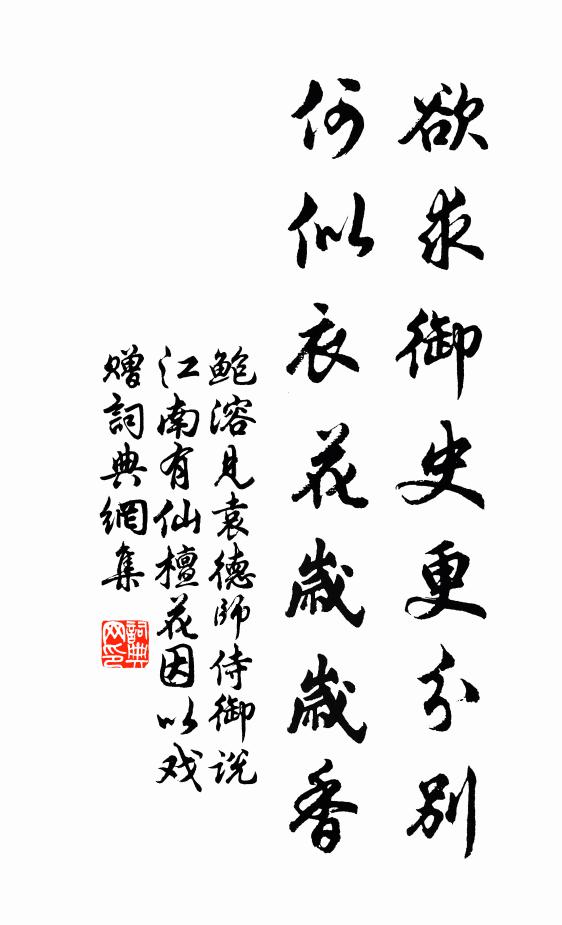 欲求御史更分別
何似衣花歲歲香
鲍溶見袁德師侍御說
江南有仙檀花因以戏
贈詞典網集
詞典網印